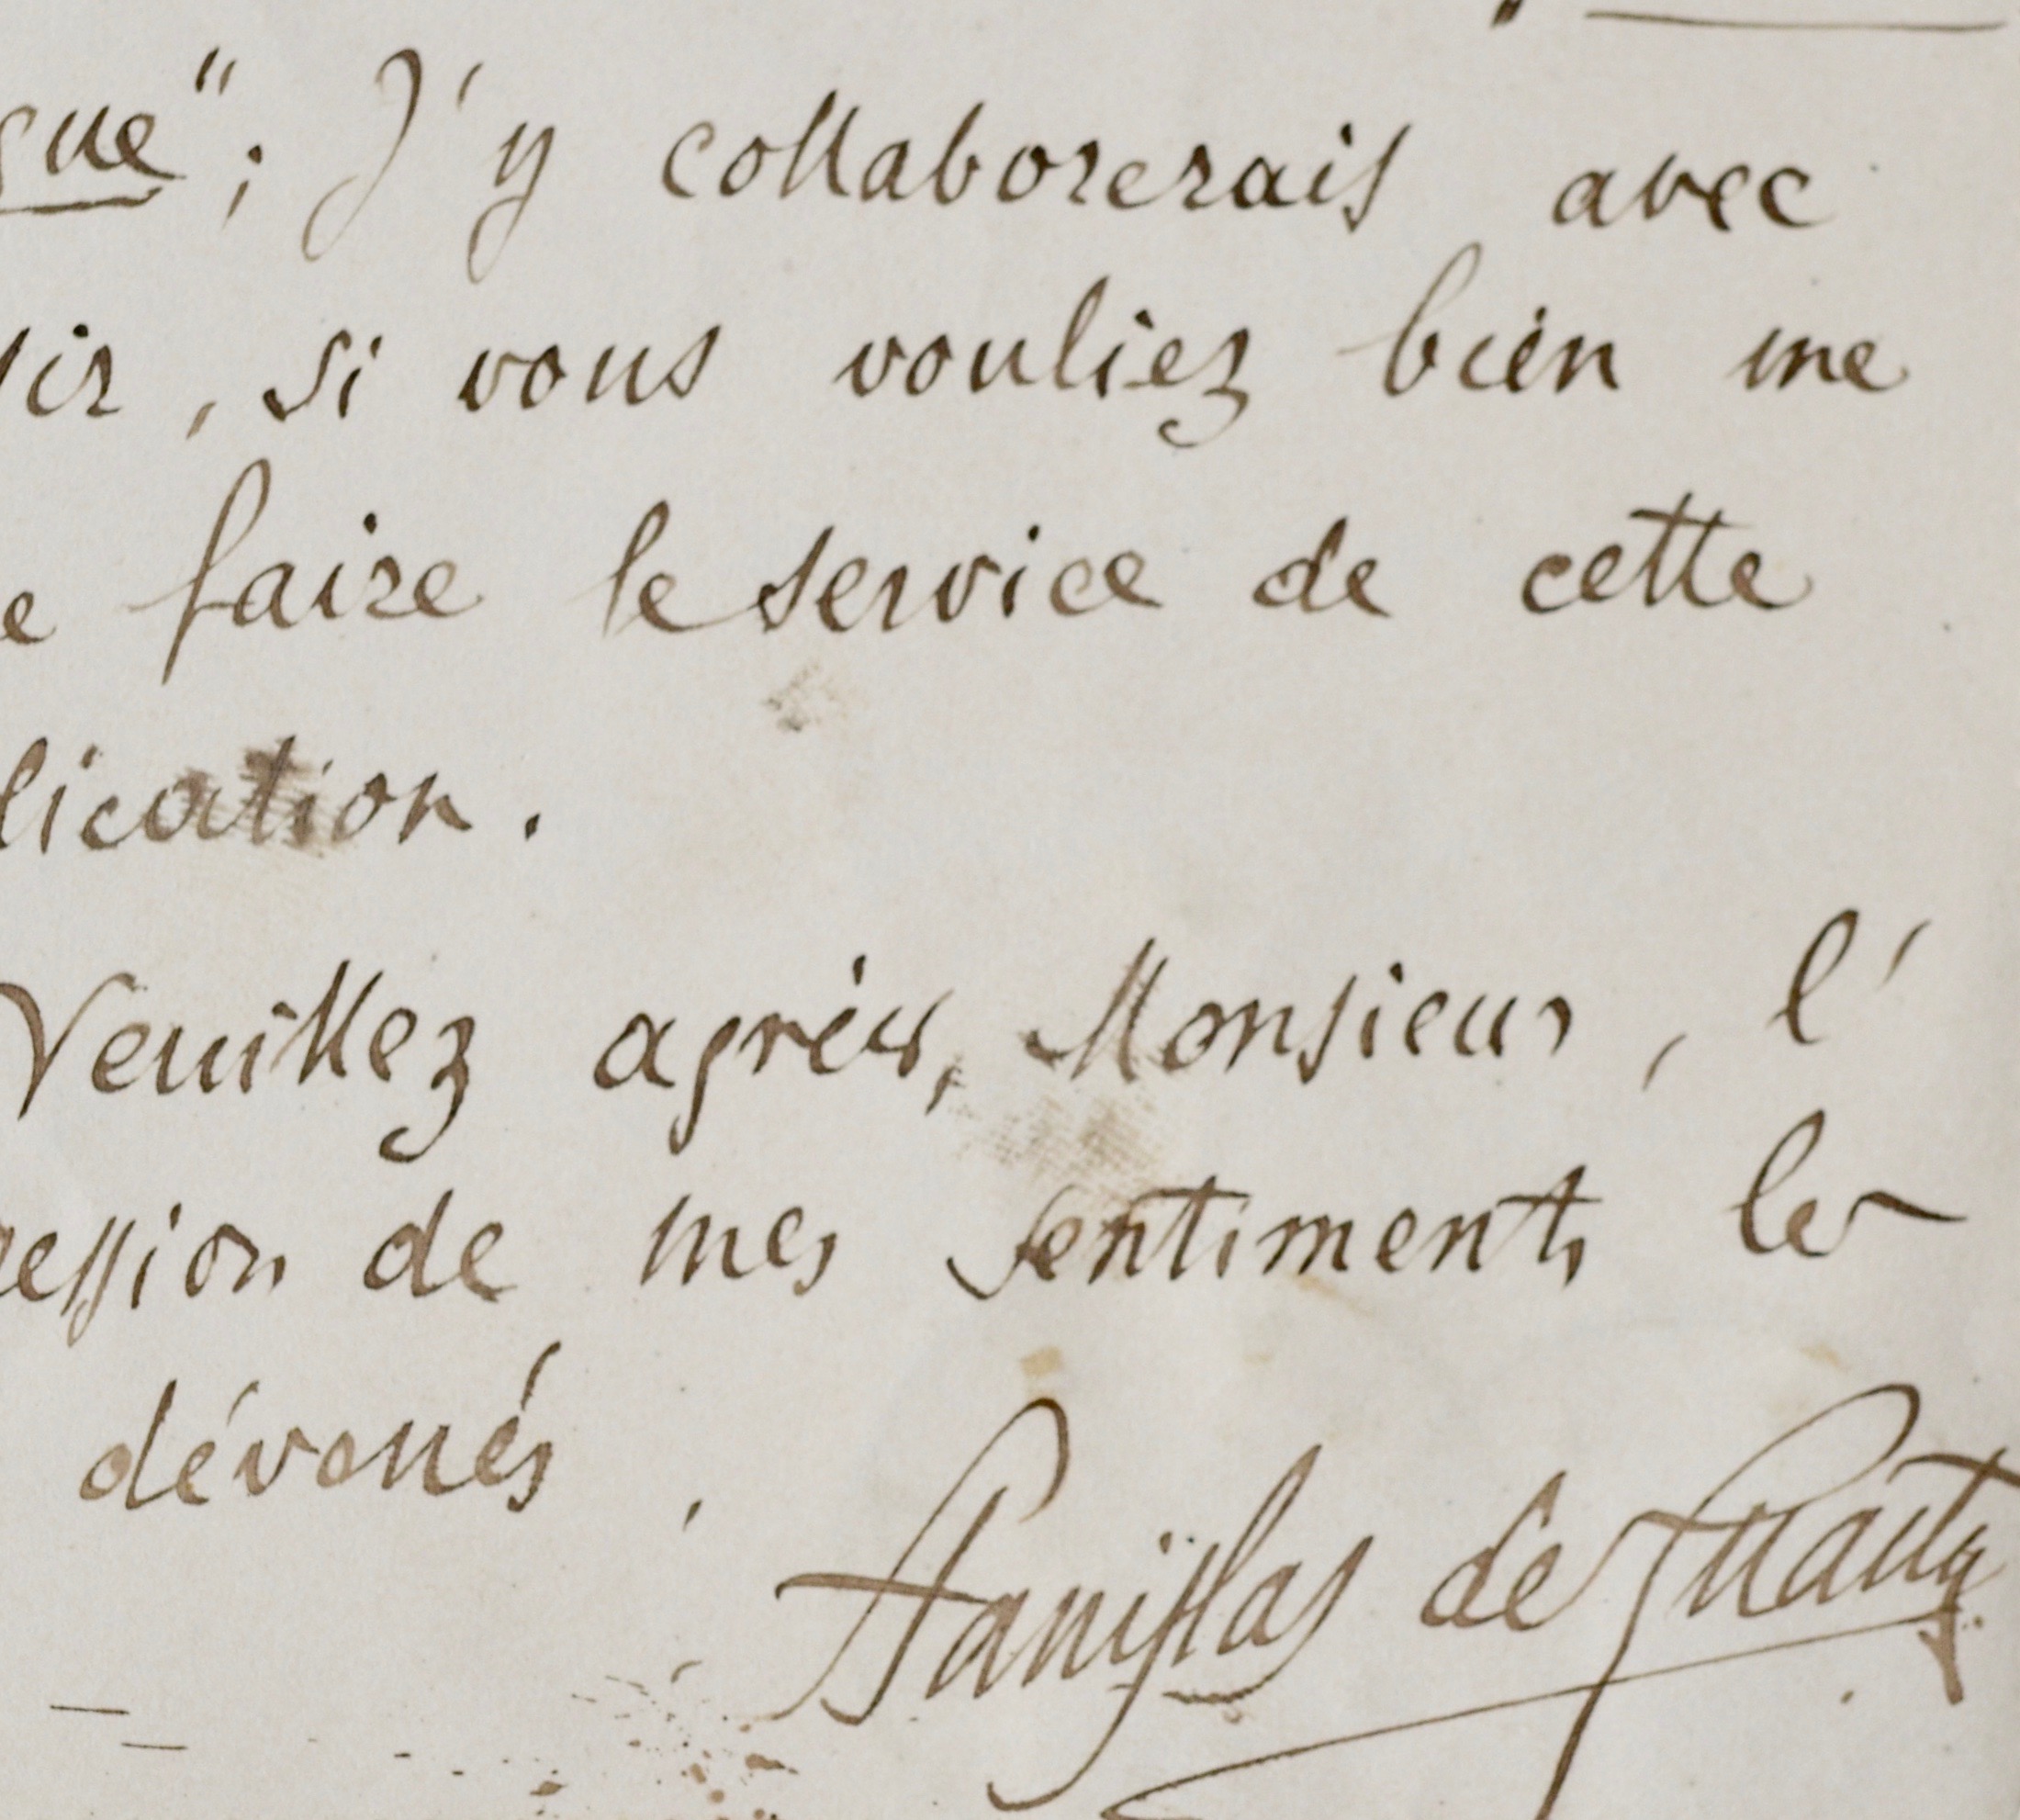 gue"; J'y collaborerais avec
sir, si vous vouliez bien me
e faire le service de cette
lication.
Veuillez agréer, Monsieur, l'
ression de mes sentiments les
dévoués.
Stanislas de Guaita